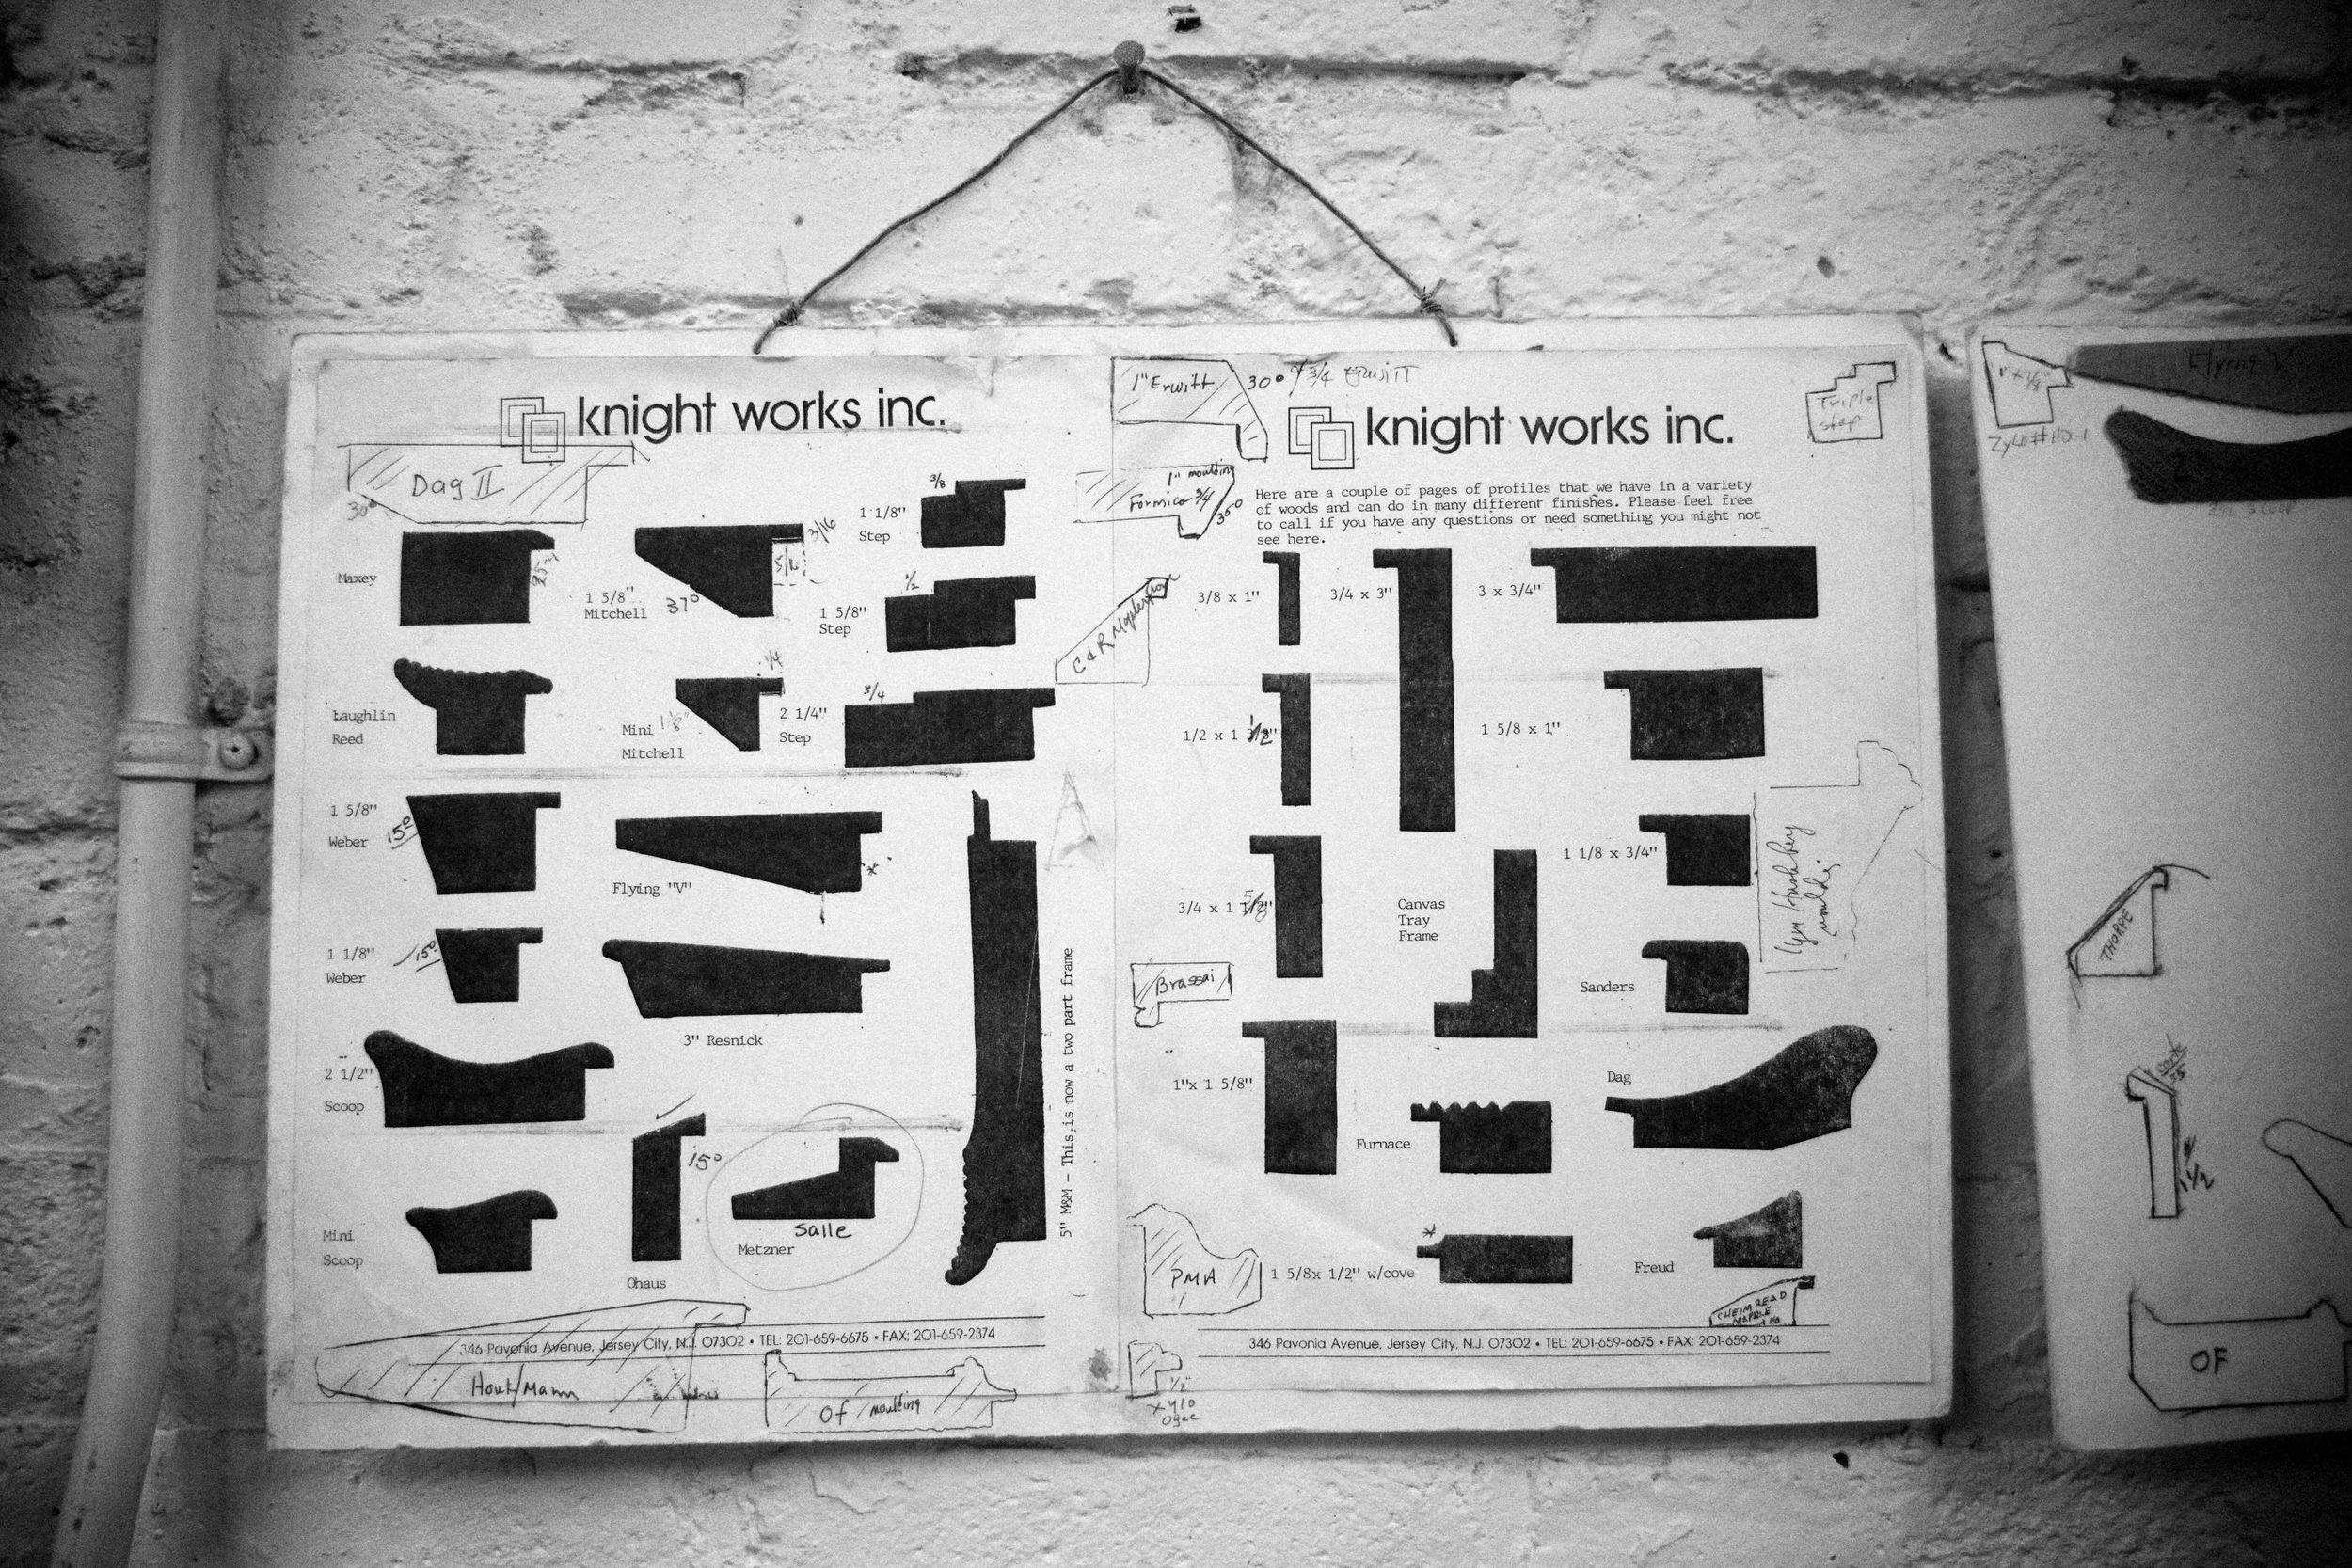 knight works inc.
Dag II
30°
Maxey
1 5/8"
Mitchell
37°
3/16
5/16
3/8
1 1/8"
Step
1/2
1 5/8"
Step
Laughlin
Reed
Mini 1 1/8"
Mitchell
1/4
3/4
2 1/4"
Step
1 5/8"
Weber
15°
Flying "V"
*
1 1/8"
Weber
15°
3" Resnick
2 1/2"
Scoop
Mini
Scoop
15°
Ohaus
Salle
Metzner
5" M&M - This is now a two part frame
A
346 Pavonia Avenue, Jersey City, N.J. 07302 • TEL: 201-659-6675 • FAX: 201-659-2374
Of moulding
1" Erwitt
30°
3/4 Erwitt
knight works inc.
Triple
step
1" moulding
Formica 3/4
35°
C&R Maple
Here are a couple of pages of profiles that we have in a variety
of woods and can do in many different finishes. Please feel free
to call if you have any questions or need something you might not
see here.
3/8 x 1"
3/4 x 3"
3 x 3/4"
1/2 x 1 1/2"
1 5/8 x 1"
3/4 x 1 5/8"
Canvas
Tray
Frame
1 1/8 x 3/4"
Brassai
Sanders
1"x 1 5/8"
Dag
Furnace
PMA
*
1 5/8x 1/2" w/cove
Freud
CHEIM READ
MAPLE
346 Pavonia Avenue, Jersey City, N.J. 07302 • TEL: 201-659-6675 • FAX: 201-659-2374
1/2"
xylo
Ogee
Flying V
1" x 7/8"
THORPE
1 1/2
OF